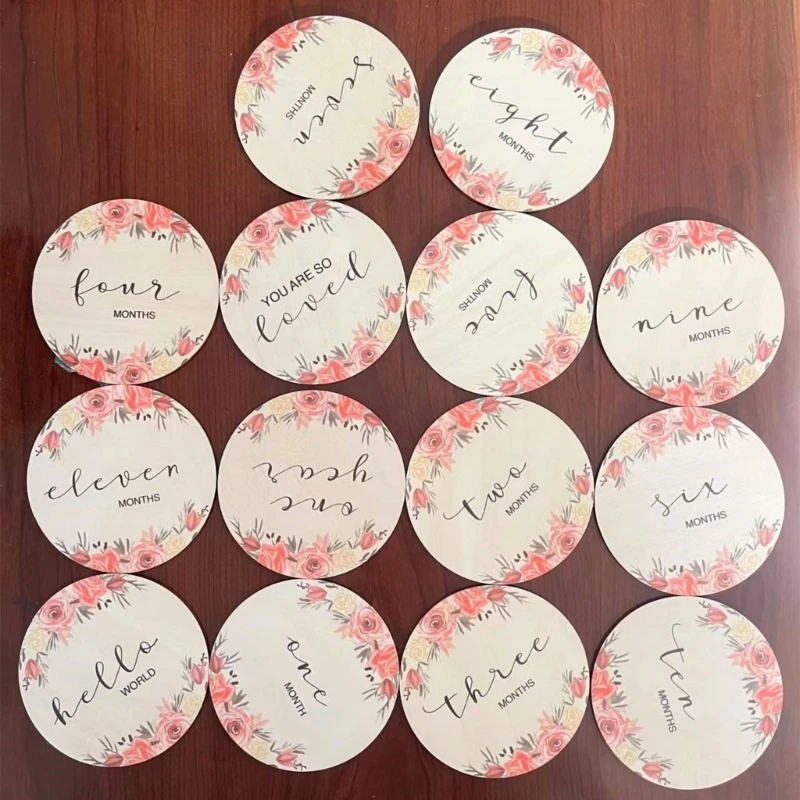 seven
MONTHS
eight
MONTHS
four
MONTHS
YOU ARE SO
loved
five
MONTHS
nine
MONTHS
eleven
MONTHS
one
year
two
MONTHS
six
MONTHS
hello
WORLD
one
MONTH
three
MONTHS
ten
MONTHS